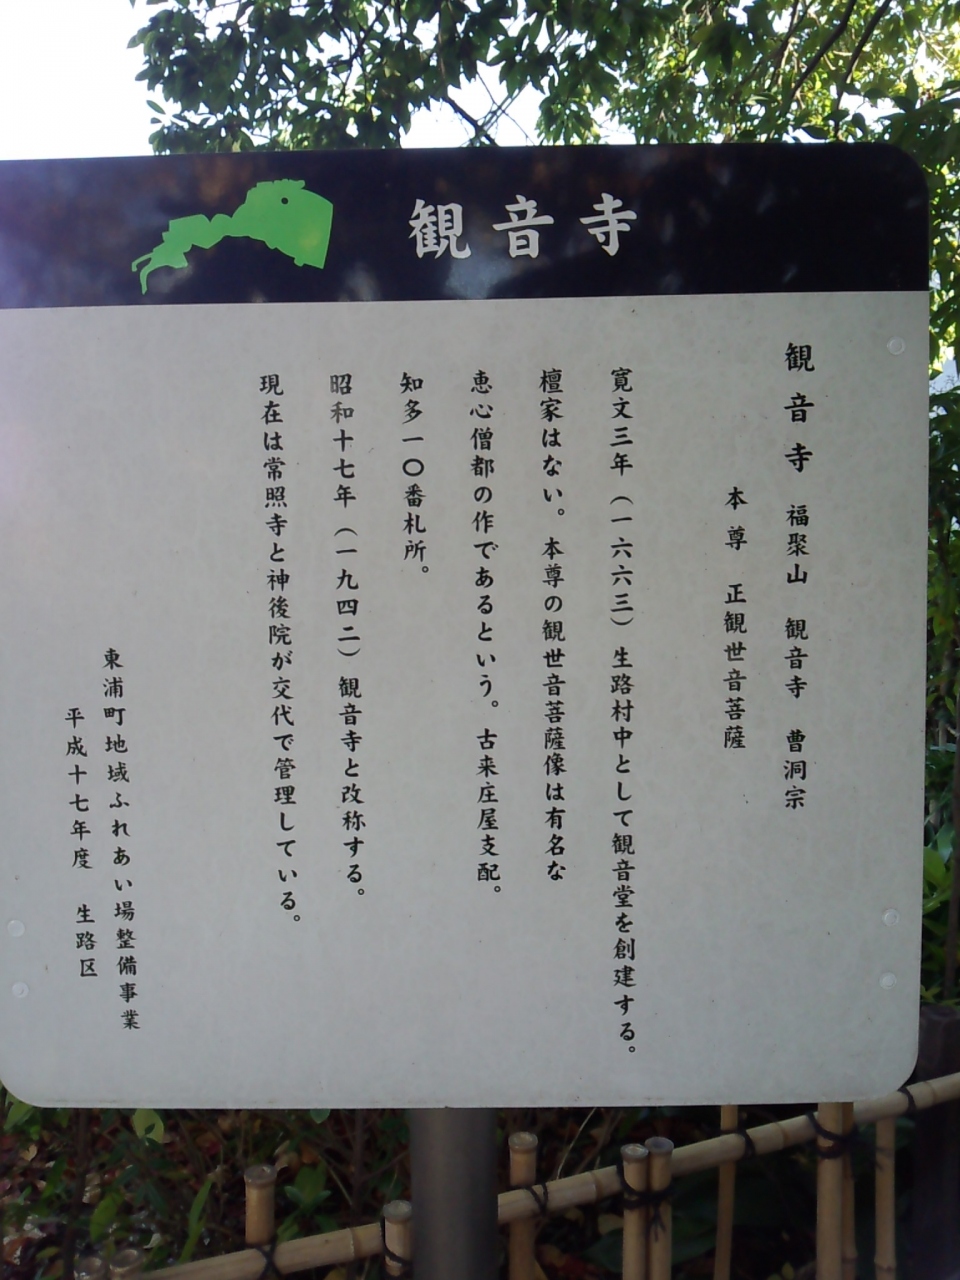 観音寺
観音寺 福聚山 観音寺 曹洞宗
本尊 正観世音菩薩
寛文三年（一六六三）生路村中として観音堂を創建する。
檀家はない。本尊の観世音菩薩像は有名な
恵心僧都の作であるという。古来庄屋支配。
知多一〇番札所。
昭和十七年（一九四二）観音寺と改称する。
現在は常照寺と神後院が交代で管理している。
東浦町地域ふれあい場整備事業
平成十七年度 生路区